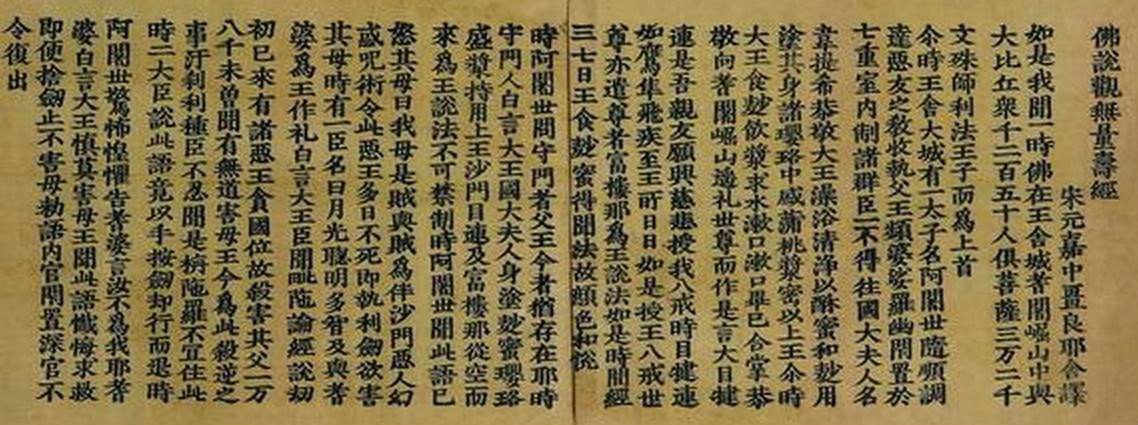 佛説觀無量壽經
宋元嘉中畺良耶舍譯
如是我聞一時佛在王舍城耆闍崛山中與
大比丘衆千二百五十人俱菩薩三万二千
文殊師利法王子而為上首
尒時王舍大城有一太子名阿闍世隨順調
達惡友之教收執父王頻婆娑羅幽閉置於
七重室内制諸群臣一不得往國大夫人名
韋提希恭敬大王澡浴清淨以酥蜜和麨用
塗其身諸瓔珞中盛蒲桃漿密以上王尒時
大王食麨飲漿求水漱口漱口畢已合掌恭
敬向耆闍崛山遥礼世尊而作是言大目揵
連是吾親友願興慈悲授我八戒時目揵連
如鷹隼飛疾至王所日日如是授王八戒世
尊亦遣尊者富樓那為王說法如是時間經
三七日王食麨蜜得聞法故顔色和悅
時阿闍世問守門者父王今者猶存在耶時
守門人白言大王國大夫人身塗麨蜜瓔珞
盛漿持用上王沙門目連及富樓那從空而
來為王説法不可禁制時阿闍世聞此語已
怒其母曰我母是賊與賊為伴沙門惡人幻
惑呪術令此惡王多日不死即執利劔欲害
其母時有一臣名曰月光聰明多智及與耆
婆為王作礼白言大王臣聞毗陁論經説劫
初已來有諸惡王貪國位故殺害其父一万
八千未曽聞有無道害母王今為此殺逆之
事汙刹利種臣不忍聞是栴陁羅不宜住此
時二大臣説此語竟以手按劔却行而退時
阿闍世驚怖惶懼告耆婆言汝不為我耶耆
婆白言大王慎莫害母王聞此語懺悔求救
即便捨劔止不害母勑語内官閉置深宫不
令復出